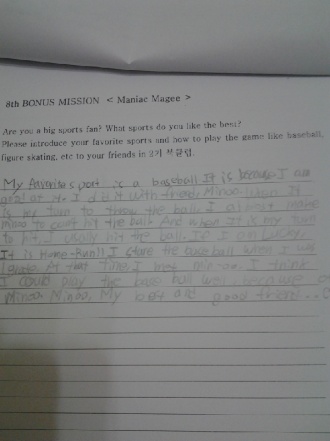 8th BONUS MISSION < Maniac Magee >
Are you a big sports fan? What sports do you like the best?
Please introduce your favorite sports and how to play the game like baseball,
figure skating, etc to your friends in 2기 북클럽.
My favorite sport is a baseball. It is because I am
good at it. I with friend, Minoa. When It
is my turn to throw the ball, I almost make
Minoa to can't hit the ball. And when It is my turn
to hit, I usually hit the ball. If I am Lucky,
It is Home-Run!! I the baseball when I was
. At that time, I met . I think
I could play the base ball well, because of
Minoa. Minoa, My best and good friend...